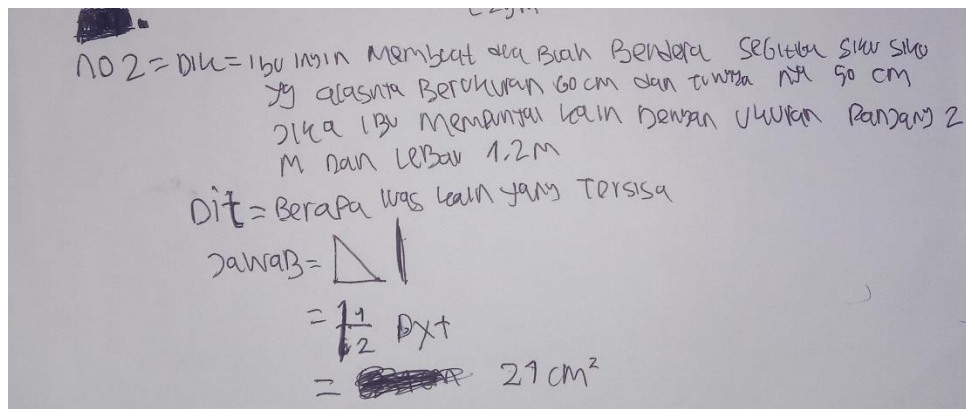 no 2 = Dik = Ibu ingin Membuat dua Buah Bendera segitiga siku siku
yg alasnya Berukuran 60 cm dan tingga nya 50 cm
Jika IBU Mempunyai kain Dengan Ukuran Panjang 2
M Dan LeBar 1.2 M
Dit = Berapa luas kain yang Tersisa
JawaB =
= 1/2 Dxt
= 21 cm²